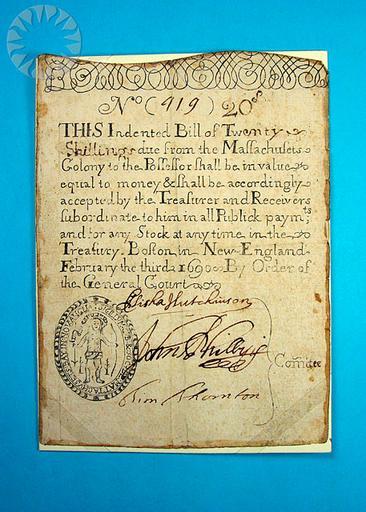 No (919) 20s
THIS Indented Bill of Twenty
Shillings due from the Massachusets
Colony to the Possessor shall be in value
equal to money & shall be accordingly
accepted by the Treasurer and Receivers
subordinate to him in all Publick paymts
and for any Stock at any time in the
Treasury. Boston in New-England
February the third 1690 By Order of
the General Court
Elisha Hutchinson
John Phillips
Tim Thornton
Comitee